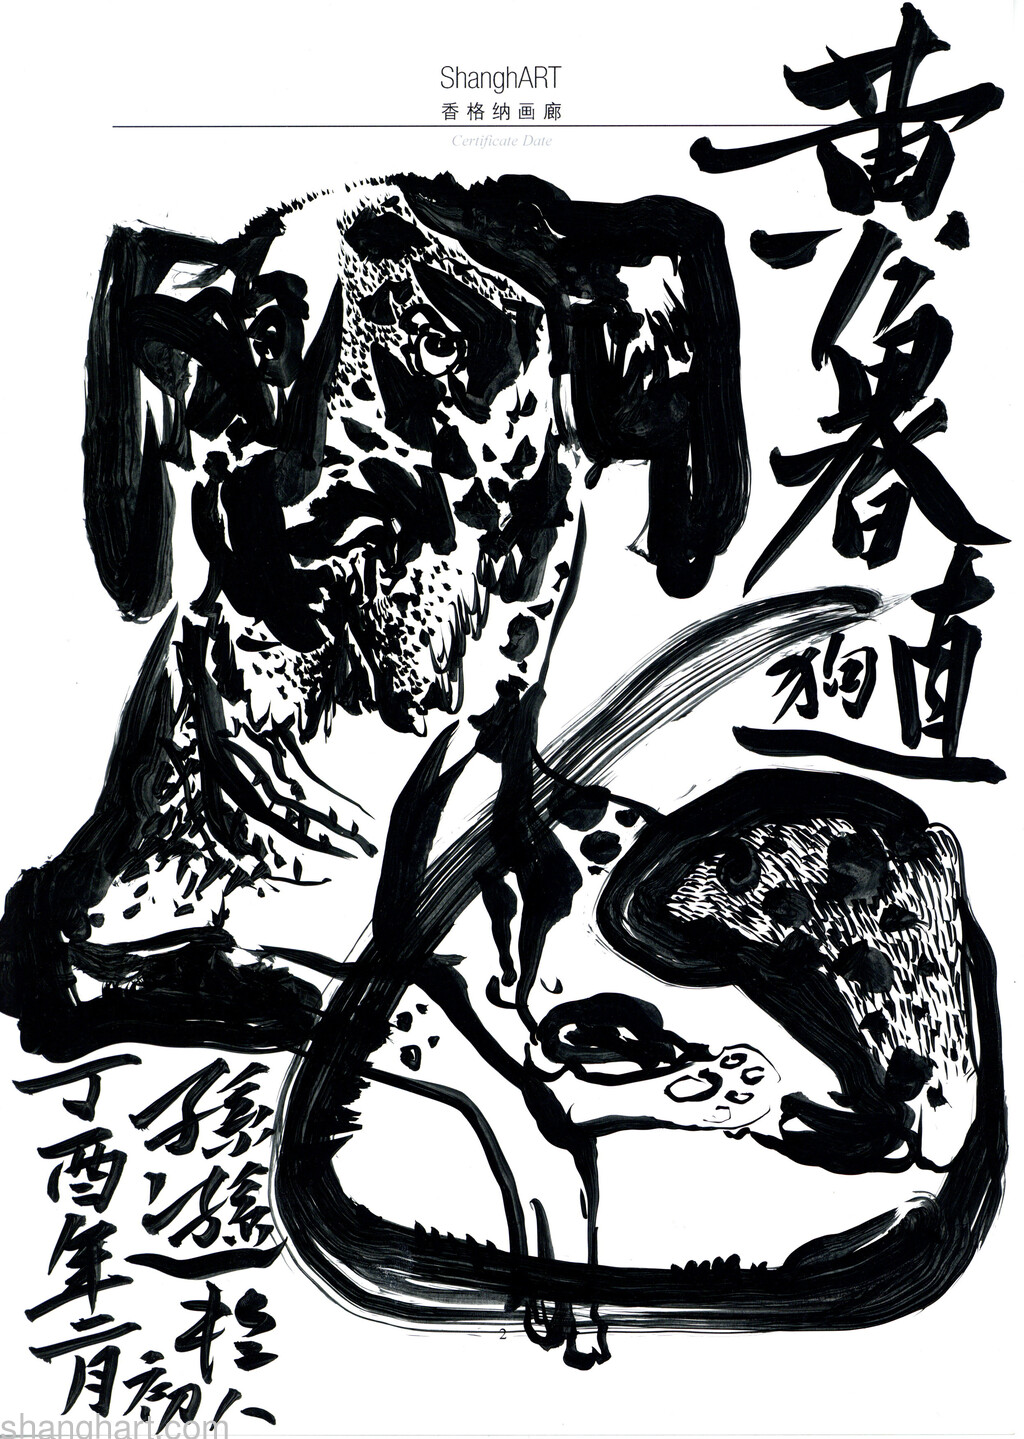 ShanghART
香格纳画廊
Certificate Date
黄
狗
直
孫遜
丁酉年二月
人
2
shanghart.com